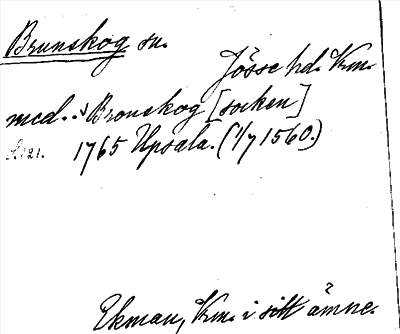 Brunskog sn.
Jösse hd. Krm.
med. Bronskog [socken]
S. 121. 1765 Upsala. (1/7 1560.)
Ekman, Krm. i sitt ämne.